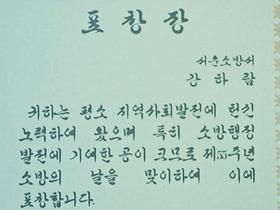 표창장
서운소방서
강하람
귀하는 평소 지역사회발전에 헌신
노력하여 왔으며 특히 소방행정
발전에 기여한 공이 크므로 제55주년
소방의 날을 맞이하여 이에
표창합니다.